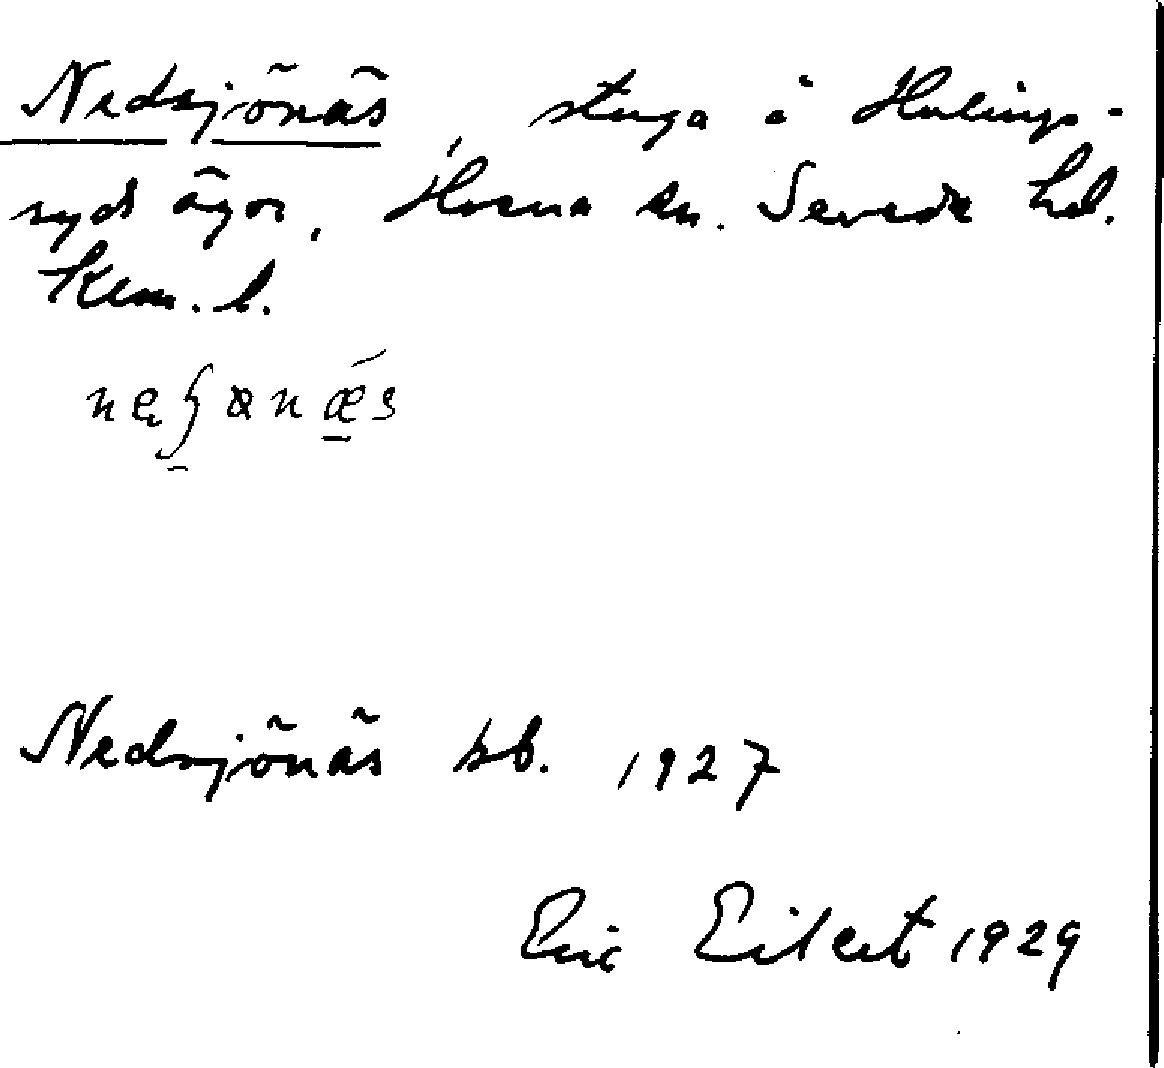 Nedsjönäs, stuga å Hulings-
ryds ägor, Hvena sn. Sevede hd.
Klm. l.
Nedsjönäs kb. 1927
Eric Eilert 1929